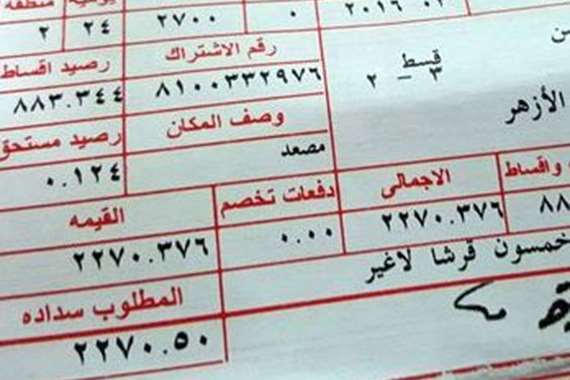 يومية منطقة
٢٠١٦
٢٧٠٠ ٢٤ ٢
رقم الاشتراك رصيد اقساط
٨١٠٠٣٣٢٩٧٦ ٨٨٣.٣٤٤
قسط
٣ – ٢
الأزهر
وصف المكان رصيد مستحق
مصعد ٠.١٢٤
واقساط الاجمالى دفعات تخصم القيمه
٨٨ ٢٢٧٠.٣٧٦ ٠.٠٠ ٢٢٧٠.٣٧٦
خمسون قرشا لاغير
المطلوب سداده
٢٢٧٠.٥٠